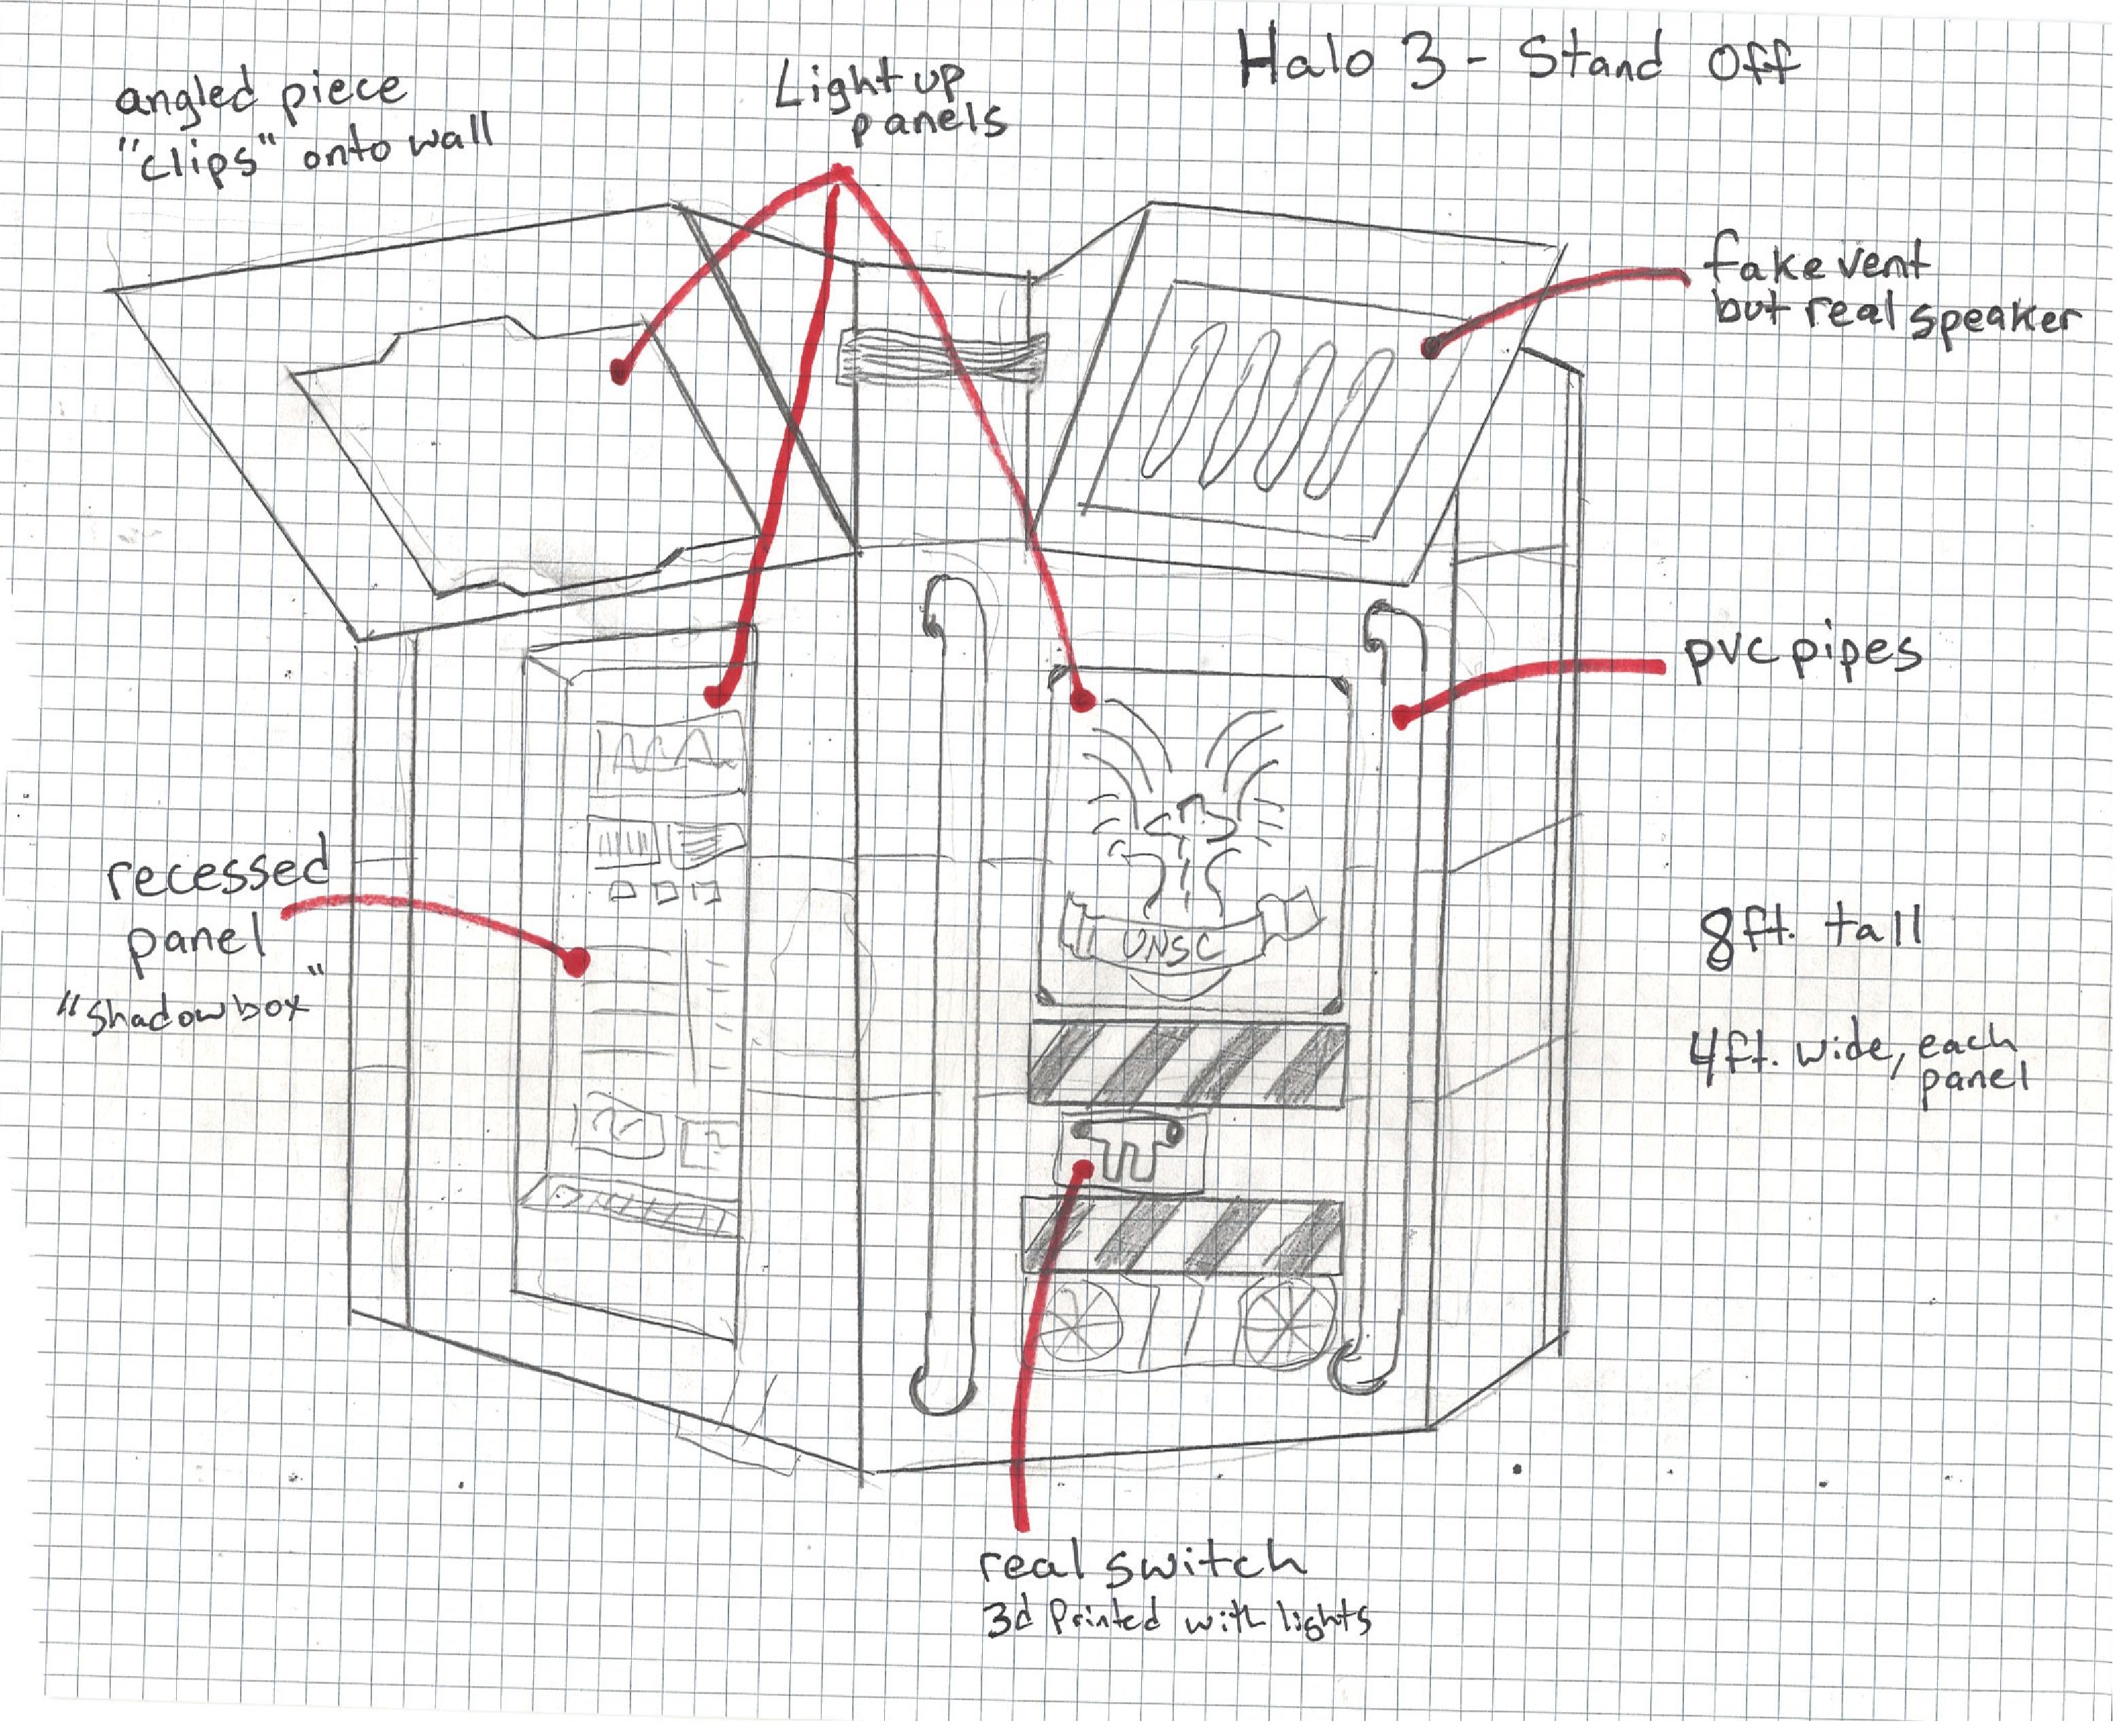 Halo 3 - Stand Off
angled piece
"clips" onto wall
Light up
panels
fake vent
but real speaker
pvc pipes
recessed
panel
"shadowbox"
UNSC
8ft. tall
4ft. wide, each
panel
real switch
3d Printed with lights